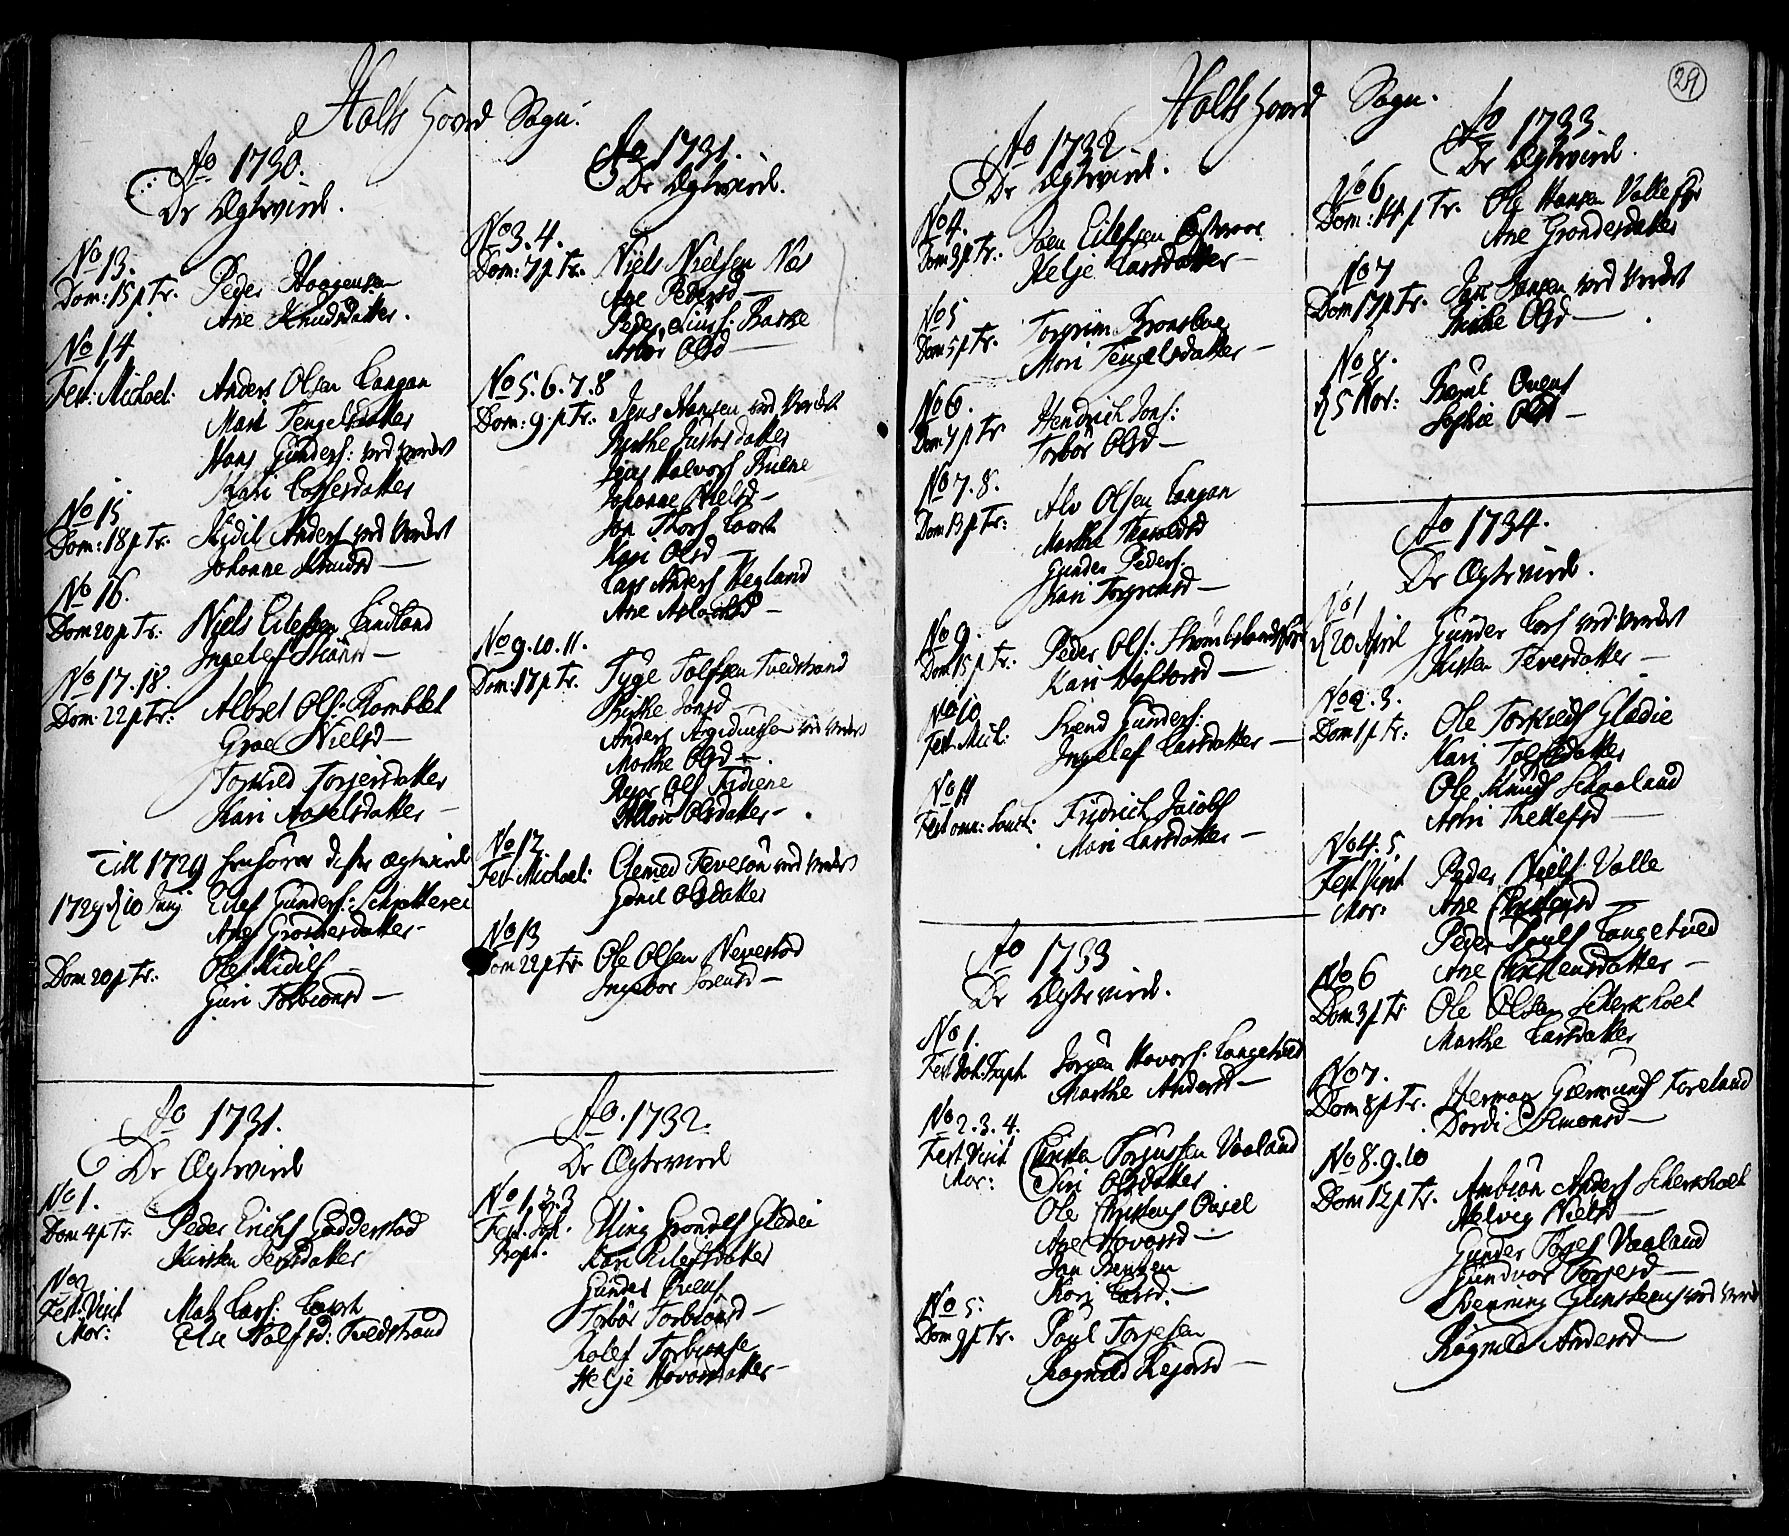 Holts Hovd Sogn.
Ao 1730.
De Ægtevied.
No 13.
Dom: 15 p Tr. Peder Haagensen
Ane Knudsdatter.
No 14
Fest: Michael: Anders Olsen Langan
Mari Tengelsdatter
Hans Gunders: ved Verket
Kari Tossesdatter
No 15
Dom: 18 p Tr. Kidil Anders ved Verket
Johanne Knudsd —
No 16.
Dom 20 p Tr: Niels Eilefsen Lindland
Ingelef
No 17. 18.
Dom: 22 p Tr: Albret Ols: Ramblet
Groe Nielsd —
Torkild Torjersdatter
Kari Axelsdatter —
Till 1729 henhører disse ægtevied
1729 d 10 Junj Eilef Gunders: Schjotterei
Ane Grondesdatter —
Dom 20 p Tr: Ole Kidils
Guri Torbionsd —
Ao 1731.
De Ægtevied
No 1.
Dom 4 p Tr. Peder Erichs Godderstad
Kirsten Jensdatter
No 2
Fest: Visit Mats Lars: Lavrk
Mar: Else Rolfsd: Tvedstrand
Ao 1731.
De Ægtevied.
No 3. 4.
Dom: 7 p Tr. Niels Nielsen Næs
Ane Pedersd —
Peder Baske
Olsd —
No 5. 6. 7. 8
Dom: 9 p Tr: Jens Hansen ved Verket
Birthe Justesdatter
Jens Halvors Buene
Johanne Nielsd —
Jon Thors
Kari Olsd
Lars Anders Hegland
Ane Aslachsd —
No 9. 10. 11.
Dom: 17 p Tr. Tyge Tolfsen Tvedstrand
Birthe Jonsd
Anders ved Verket
Marthe Olsd —
Reier Ols Fidiene
Olsdatter —
No 12.
Fest: Michael: Clemed Teveson ved Verket
Gunil Olsdatter
No 13
Dom 22 p Tr. Ole Olsen Neverstad
Ingebor Sorensd —
Ao. 1732.
De Ægtevied
No 1 2. 3
Fest. Joh. Elling Grondes Gledei
Bapt. Kari Eilefsdatter
Gunder Evens
Torbor Torbionsd —
Rolef Torbionse
Helje Hovorsdatter —
29
Holts Hovd Sogn.
Ao 1732
De Ægtevied.
No 4.
Dom 3 p Tr: Joen Eilefsen
Helje Larsdatter —
No 5
Dom 5 p Tr. Torgrim Bronsberg
Mari Tengelsdatter —
No 6.
Dom 7 p Tr Hendrich Jons:
Torbor Olsd —
No 7. 8.
Dom 13 p Tr: Alv Olsen Langan
Marthe Tharaldsd
Gunder Peders.
Kari Torgrimsd —
No 9.
Dom 15 p Tr: Peder Ols:
Kari
No 10
Fest. Mich: Svend Gunders:
Ingelef Larsdatter —
No 11
Fest omn: Sanct: Fridrich Jacobs
Mari Larsdatter —
Ao 1733
De Ægtevied.
No 1.
Fest Joh: Bapt Jorgen Hovors: Langetved
Marthe Andersd —
No 2. 3. 4.
Fest Visit Christen Torjussen Vaaland
Mar: Siri Olsdatter
Ole Christens Oasel
Ane Hovorsd —
Jan Bentzen
Kari Larsd —
No 5:
Dom 9 p Tr. Poul Torjesen
Ragnild Rejersd —
Ao 1733
De Ægtevied.
No 6
Dom: 14 p Tr. Ole Hansen Valle
Ane Grondesdatter
No 7
Dom 17 p Tr. Jens Jansen ved Verket
Birthe Olsd —
No 8.
d 5 Nov: Poul Ovens
Sophie Olsd —
Ao 1734.
De Ægtevied.
No 1
d 20 April Gunder Lars ved Verket
Kirsten Tevesdatter —
No 2. 3.
Dom 1 p Tr: Ole Torkilds Gledie
Kari Tolfsdatter
Ole Knuds Schaaland
Astri Thellefsd —
No 4. 5.
Fest Visit Peder Niels: Valle
Mar: Ane Christensd —
Peder Pouls Langetved
No 6 Ane Christensdatter —
Dom 3 p Tr Ole Olsen Scherkholt
Marthe Larsdatter
No 7.
Dom 8 p Tr. Herman Giermunds Foreland
Dordi Simonsd —
No 8. 9. 10
Dom 12 p Tr. Ambion Anders Scherkholt
Helvig Nielsd —
Gunder Tores Vaaland
Gundvor Torjersd —
Henning ved Verket
Ragnild Andersd —